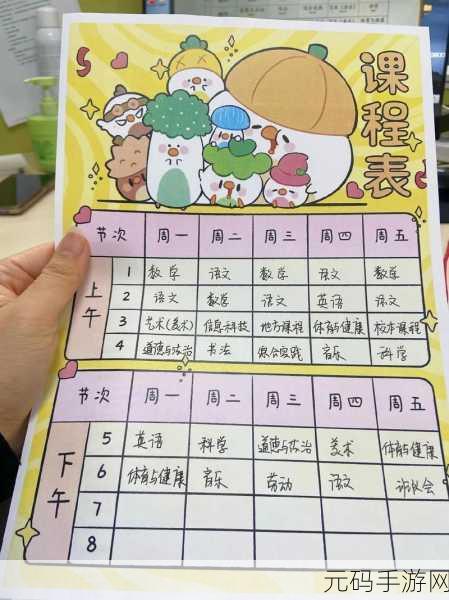 课程表
节次 周一 周二 周三 周四 周五
上午
1 数学 语文 数学 语文 数学
2 语文 数学 语文 英语 语文
3 艺术(美术) 信息科技 地方课程 体育与健康 校本课程
4 道德与法治 书法 综合实践 音乐 科学
节次 周一 周二 周三 周四 周五
下午
5 英语 科学 道德与法治 美术 体育与健康
6 体育与健康 音乐 劳动 语文
7
8
元码手游网